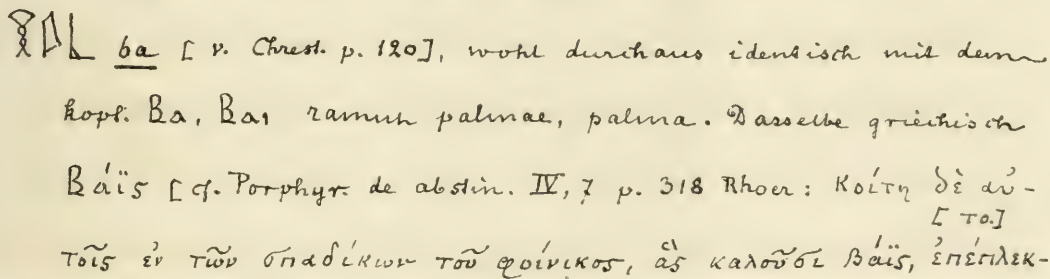 ba [v. Chrest. p. 120], wohl durchaus identisch mit dem
kopt. Ⲃⲁ, Ⲃⲁⲓ ramum palmae, palma. Dasselbe griechisch
Βάϊς [cf. Porphyr. de abstin. IV, 7 p. 318 Rhoer: Κοίτη δὲ αὐ-
[το.]
τοῖς ἐν τῶν σπαδίκων τοῦ φοίνικος, ἃς καλοῦσι βάϊς, ἐπέπλεκ-